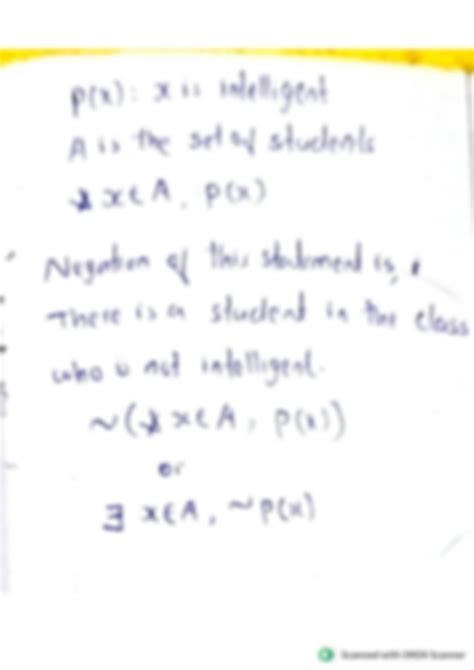 p(x): x is intelligent
A is the set of students
∀ x ∈ A, p(x)
Negation of this statement is,
There is a student in the class
who is not intelligent.
~(∀ x ∈ A, p(x))
or
∃ x ∈ A, ~p(x)
Scanned with OKEN Scanner